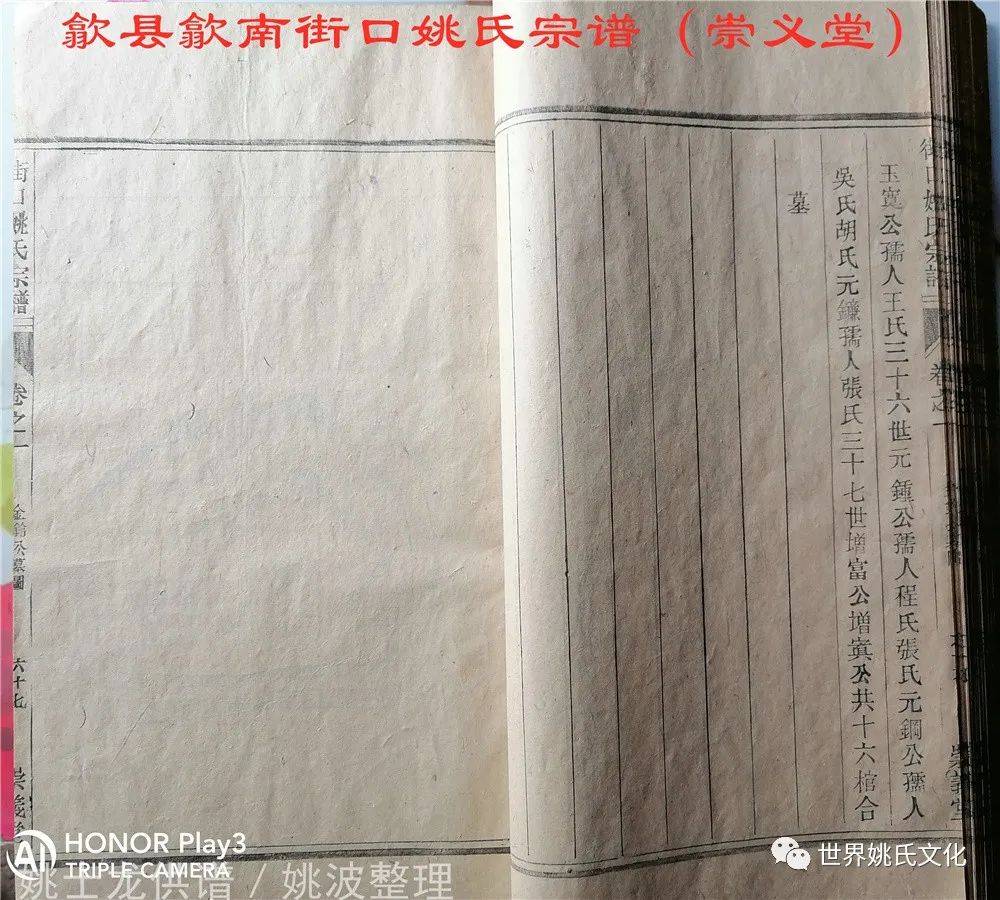 歙县歙南街口姚氏宗谱（崇义堂）
街口姚氏宗譜
卷之一
崇義堂
玉寬公孺人王氏三十六世元鍾公孺人程氏張氏元鋼公孺人
吳氏胡氏元鐮孺人張氏三十七世增富公增寘公共十六棺合
墓
街口姚氏宗譜
卷之二
金翁公墓圖
六十七
崇義
AI
HONOR Play3
TRIPLE CAMERA
世界姚氏文化
姚土龙供谱 / 姚波整理